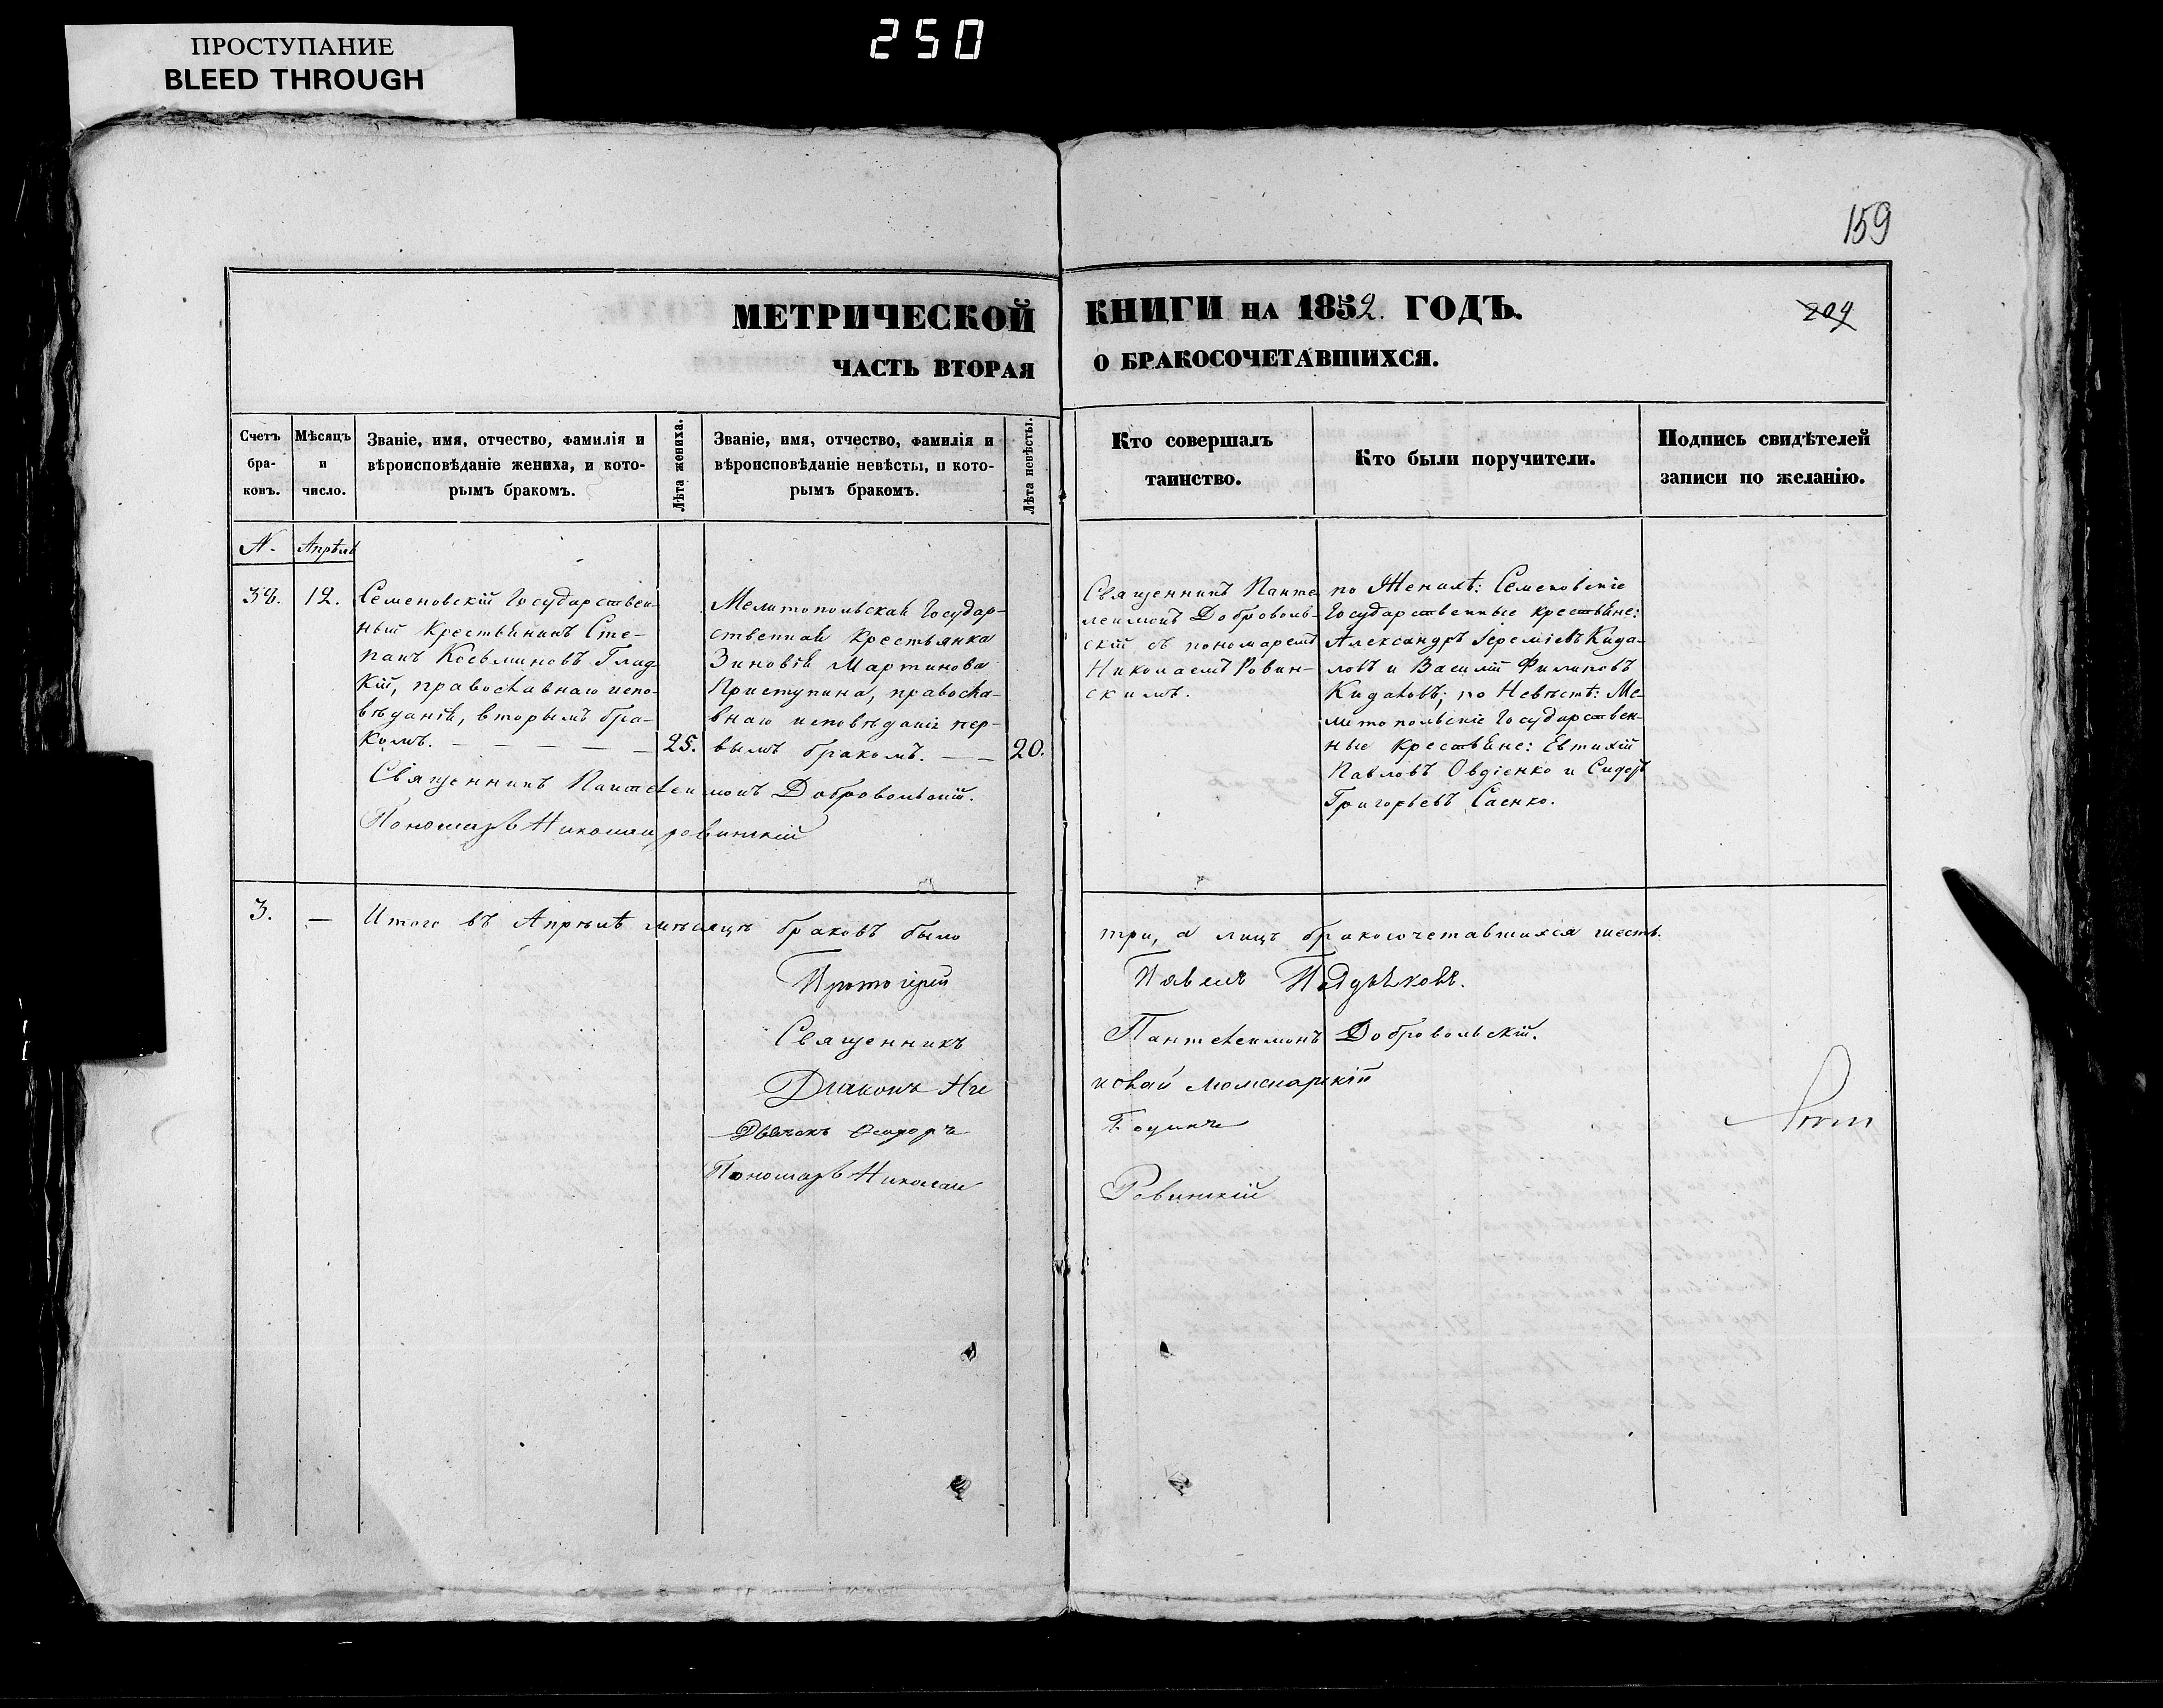 ПРОСТУПАНИЕ
BLEED THROUGH
250
159
МЕТРИЧЕСКОЙ КНИГИ НА 1852. ГОДЪ.
204
ЧАСТЬ ВТОРАЯ О БРАКОСОЧЕТАВШИХСЯ.
Счетъ
бра-
ковъ.
Мѣсяцъ
и
число.
Званіе, имя, отчество, фамилія и
вѣроисповѣданіе жениха, и кото-
рымъ бракомъ.
Лѣта жениха.
Званіе, имя, отчество, фамилія и
вѣроисповѣданіе невѣсты, и кото-
рымъ бракомъ.
Лѣта невѣсты.
Кто совершалъ
таинство.
Кто были поручители.
Подпись свидѣтелей
записи по желанію.
N.
Апрѣль
12.
Семеновскій Государствен-
ный Крестьянинъ Сте-
панъ Косьминовъ Глад-
кій, православнаго испо-
вѣданія, вторымъ бра-
комъ.
25.
Мелитопольская Государ-
ственная Крестьянка
Зиновія Мартинова
Приступина, правосла-
внаго исповѣданія пер-
вымъ бракомъ.
20.
Священникъ Панте
леимонъ Доброволь-
скій съ пономаремъ
Николаемъ Ровин-
скимъ.
по Женихѣ: Семеновскіе
Государственные крестьяне:
Александръ Іереміевъ Кида-
ловъ и Василій Филиповъ
Кидаловъ; по Невѣстѣ: Ме-
литопольскіе Государствен-
ные крестьяне: Евтихій
Павловъ Овдіенко и Сидоръ
Григорьевъ Саенко.
Священникъ Пантелеимонъ Добровольскій.
Пономарь Николай Ровинскій
3. — Итого въ Апрѣлѣ мѣсяцѣ браковъ было три, а лицъ бракосочетавшихся шесть.
Протоіерей Павелъ
Священникъ Пантелеимонъ Добровольскій.
Діаконъ Николай
Дьячекъ Феодоръ
Пономарь Николай Ровинскій